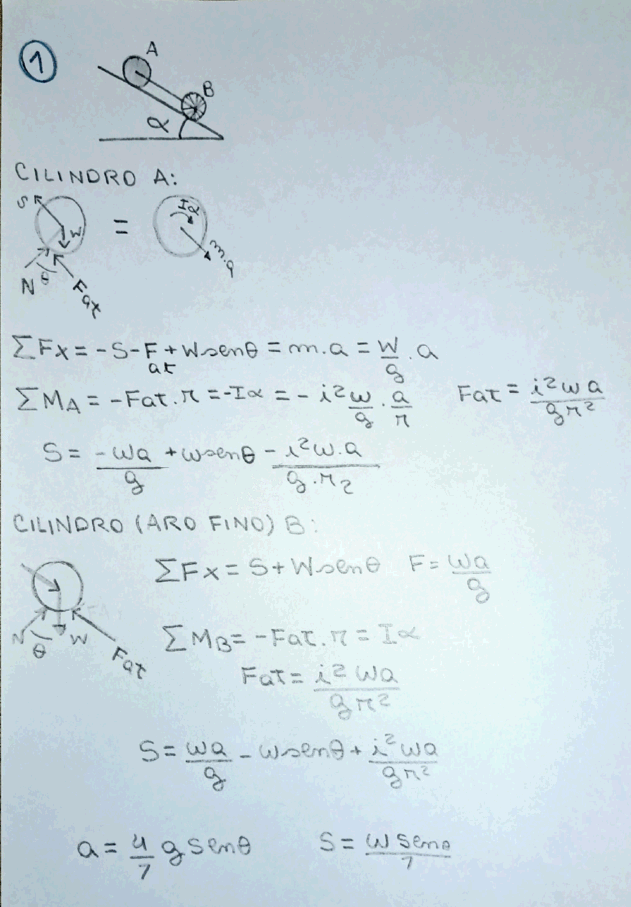 1
A
B
α
CILINDRO A:
S W N θ Fat = Iα m.a
ΣFx = -S-Fat+Wsenθ = m.a = W/g . a
ΣMA = -Fat.r = -Iα = - i²w/g . a/r Fat = i²wa/gr²
S = -wa/g + wsenθ - i²w.a/g.r2
CILINDRO (ARO FINO) B:
ΣFx = S+Wsenθ F= wa/g
N θ W Fat
ΣMB= -Fat.r = Iα
Fat= i²wa/gr²
S= wa/g - wsenθ + i²wa/gr²
a = 4/7 g senθ S = w senθ/7